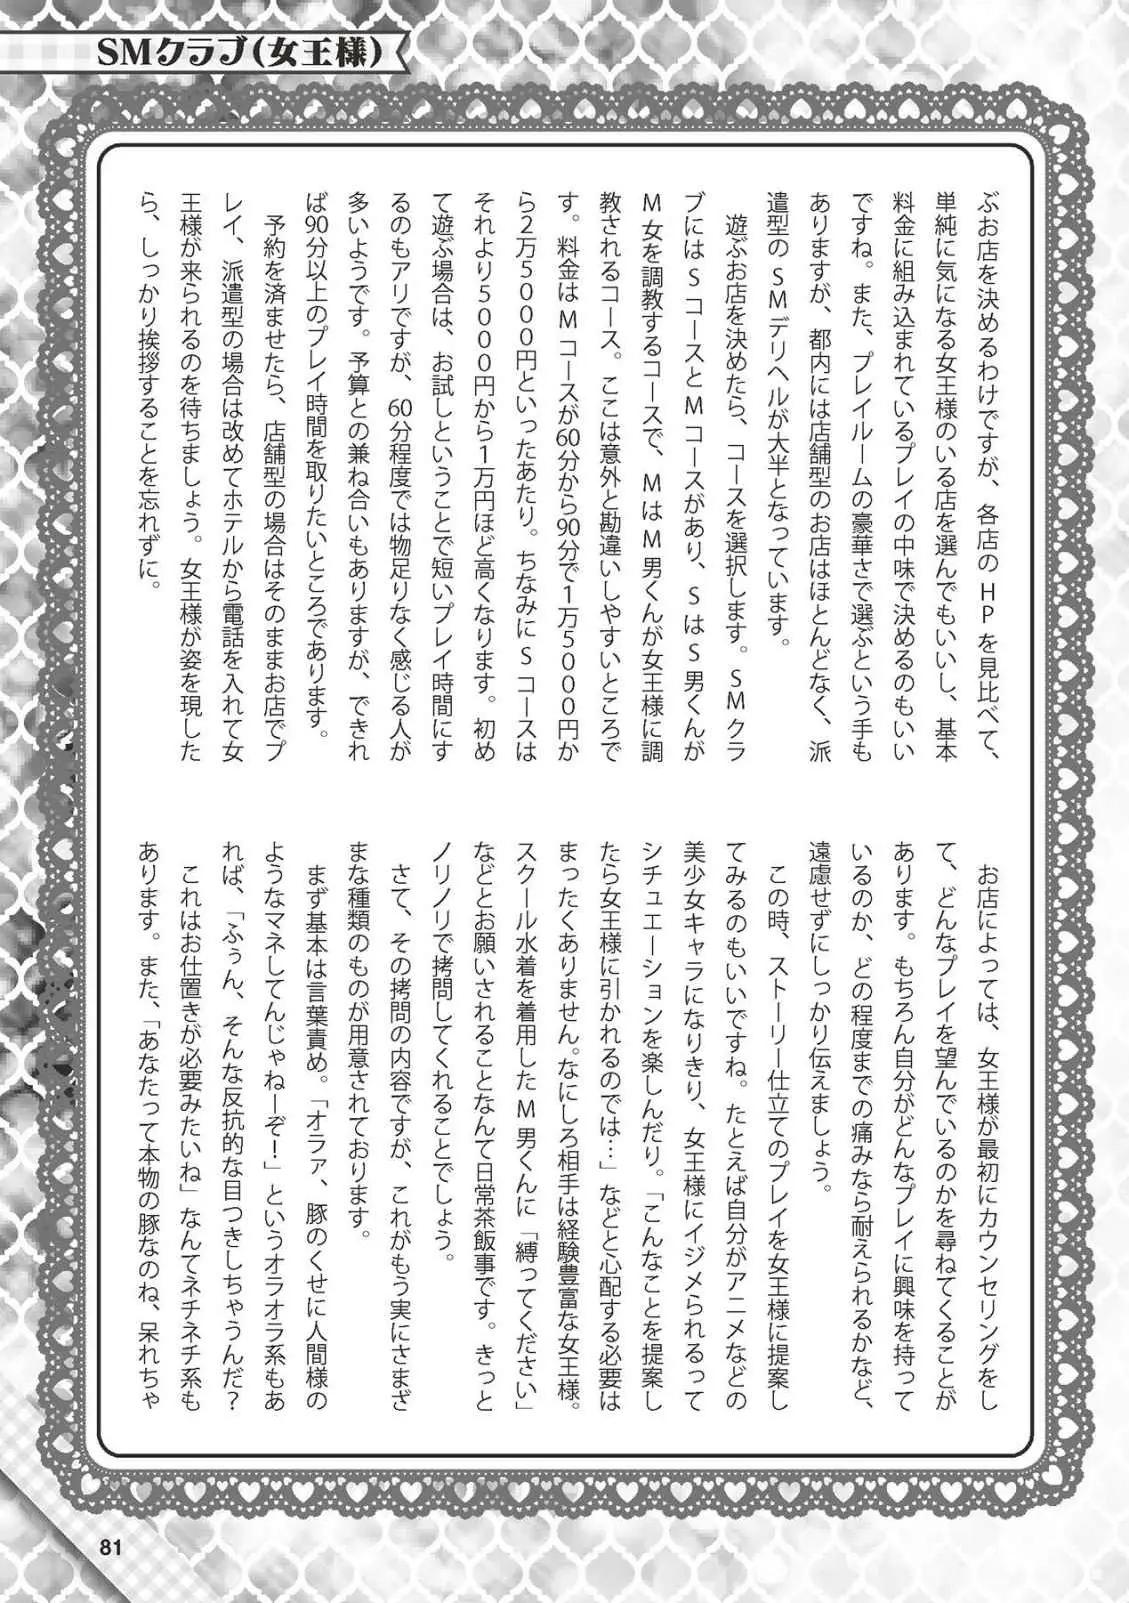 SMクラブ（女王様）
ぶお店を決めるわけですが、各店のHPを見比べて、
単純に気になる女王様のいる店を選んでもいいし、基本
料金に組み込まれているプレイの中味で決めるのもいい
ですね。また、プレイルームの豪華さで選ぶという手も
ありますが、都内には店舗型のお店はほとんどなく、派
遣型のSMデリヘルが大半となっています。
遊ぶお店を決めたら、コースを選択します。SMクラ
ブにはSコースとMコースがあり、SはS男くんが
M女を調教するコースで、MはM男くんが女王様に調
教されるコース。ここは意外と勘違いしやすいところで
す。料金はMコースが60分から90分で1万5000円か
ら2万5000円といったあたり。ちなみにSコースは
それより5000円から1万円ほど高くなります。初め
て遊ぶ場合は、お試しということで短いプレイ時間にす
るのもアリですが、60分程度では物足りなく感じる人が
多いようです。予算との兼ね合いもありますが、できれ
ば90分以上のプレイ時間を取りたいところであります。
予約を済ませたら、店舗型の場合はそのままお店でプ
レイ、派遣型の場合は改めてホテルから電話を入れて女
王様が来られるのを待ちましょう。女王様が姿を現した
ら、しっかり挨拶することを忘れずに。
お店によっては、女王様が最初にカウンセリングをし
て、どんなプレイを望んでいるのかを尋ねてくることが
あります。もちろん自分がどんなプレイに興味を持って
いるのか、どの程度までの痛みなら耐えられるかなど、
遠慮せずにしっかり伝えましょう。
この時、ストーリー仕立てのプレイを女王様に提案し
てみるのもいいですね。たとえば自分がアニメなどの
美少女キャラになりきり、女王様にイジメられるって
シチュエーションを楽しんだり。「こんなことを提案し
たら女王様に引かれるのでは…」などと心配する必要は
まったくありません。なにしろ相手は経験豊富な女王様。
スクール水着を着用したM男くんに「縛ってください」
などとお願いされることなんて日常茶飯事です。きっと
ノリノリで拷問してくれることでしょう。
さて、その拷問の内容ですが、これがもう実にさまざ
まな種類のものが用意されております。
まず基本は言葉責め。「オラァ、豚のくせに人間様の
ようなマネしてんじゃねーぞ！」というオラオラ系もあ
れば、「ふぅん、そんな反抗的な目つきしちゃうんだ？
これはお仕置きが必要みたいね」なんてネチネチ系も
あります。また、「あなたって本物の豚なのね、呆れちゃ
81